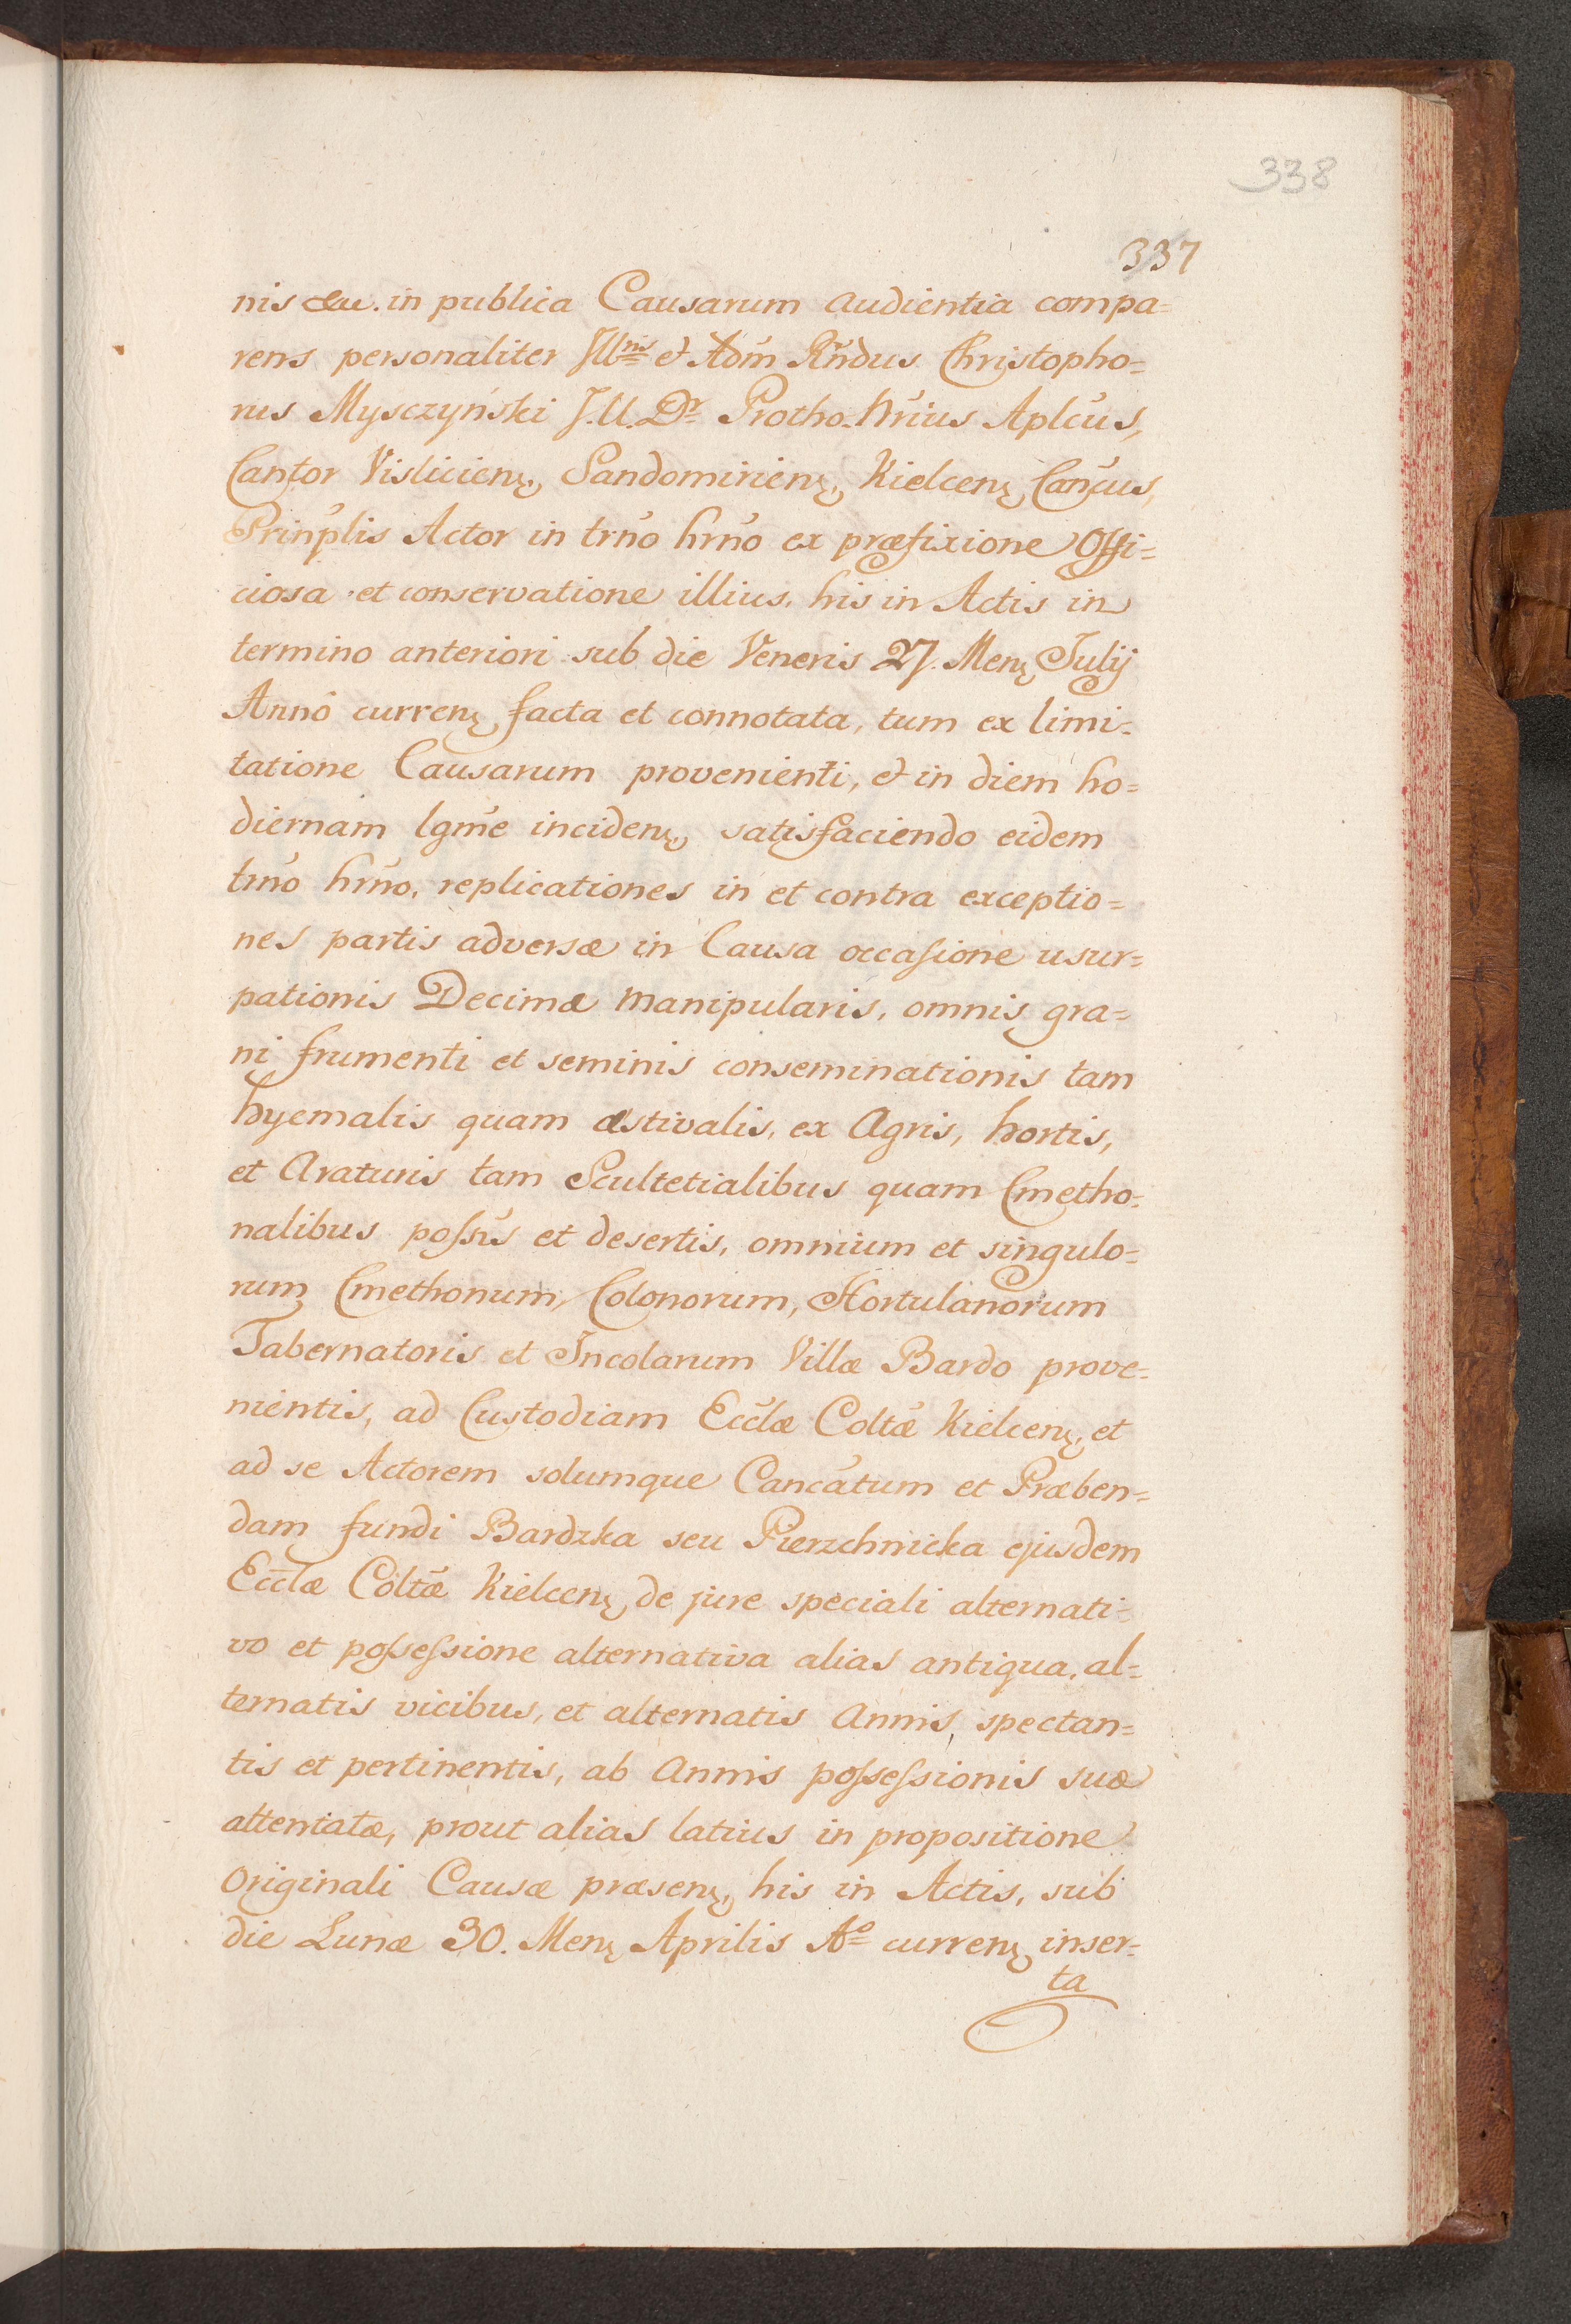 338
337
nis &c. in publica Causarum audientia compa=
rens personaliter Jllris et Adm Rndus Christopho=
rus Mysczyński J.U.Dr Protho-Nrius Aplcus,
Cantor Vislicieng, Sandomirieng, Kielceng Cancus,
Prinplis Actor in trno hrno ex præfixione Offi=
ciosa et conservatione illius, his in Actis in
termino anteriori sub die Veneris 27. Meng Julij
Anno curreng facta et connotata, tum ex limi-
tatione Causarum provenienti, et in diem ho=
diernam lgme incideng, satisfaciendo eidem
trno hrno, replicationes in et contra exceptio=
nes partis adversæ in Causa occasione usur=
pationis Decimæ manipularis, omnis gra=
ni frumenti et seminis conseminationis tam
hyemalis quam æstivalis, ex Agris, hortis,
et Araturis tam Scultetialibus quam Cmetho-
nalibus possis et desertis, omnium et singulo=
rum Cmethonum, Colonorum, Hortulanorum
Tabernatoris et Incolarum Villæ Bardo prove=
nientis, ad Custodiam Ecclæ Coltæ Kielceng, et
ad se Actorem solumque Cancatum et Præben=
dam fundi Bardzka seu Pierzchnicka ejusdem
Ecclæ Coltæ Kielceng de jure speciali alternati=
vo et possessione alternativa alias antiqua, al=
ternatis vicibus, et alternatis Annis, spectan=
tis et pertinentis, ab Annis possessionis suæ
attentatæ, prout alias latius in propositione
Originali Causæ præseng, his in Actis, sub
die Lunæ 30. Meng Aprilis Ao curreng inser=
ta